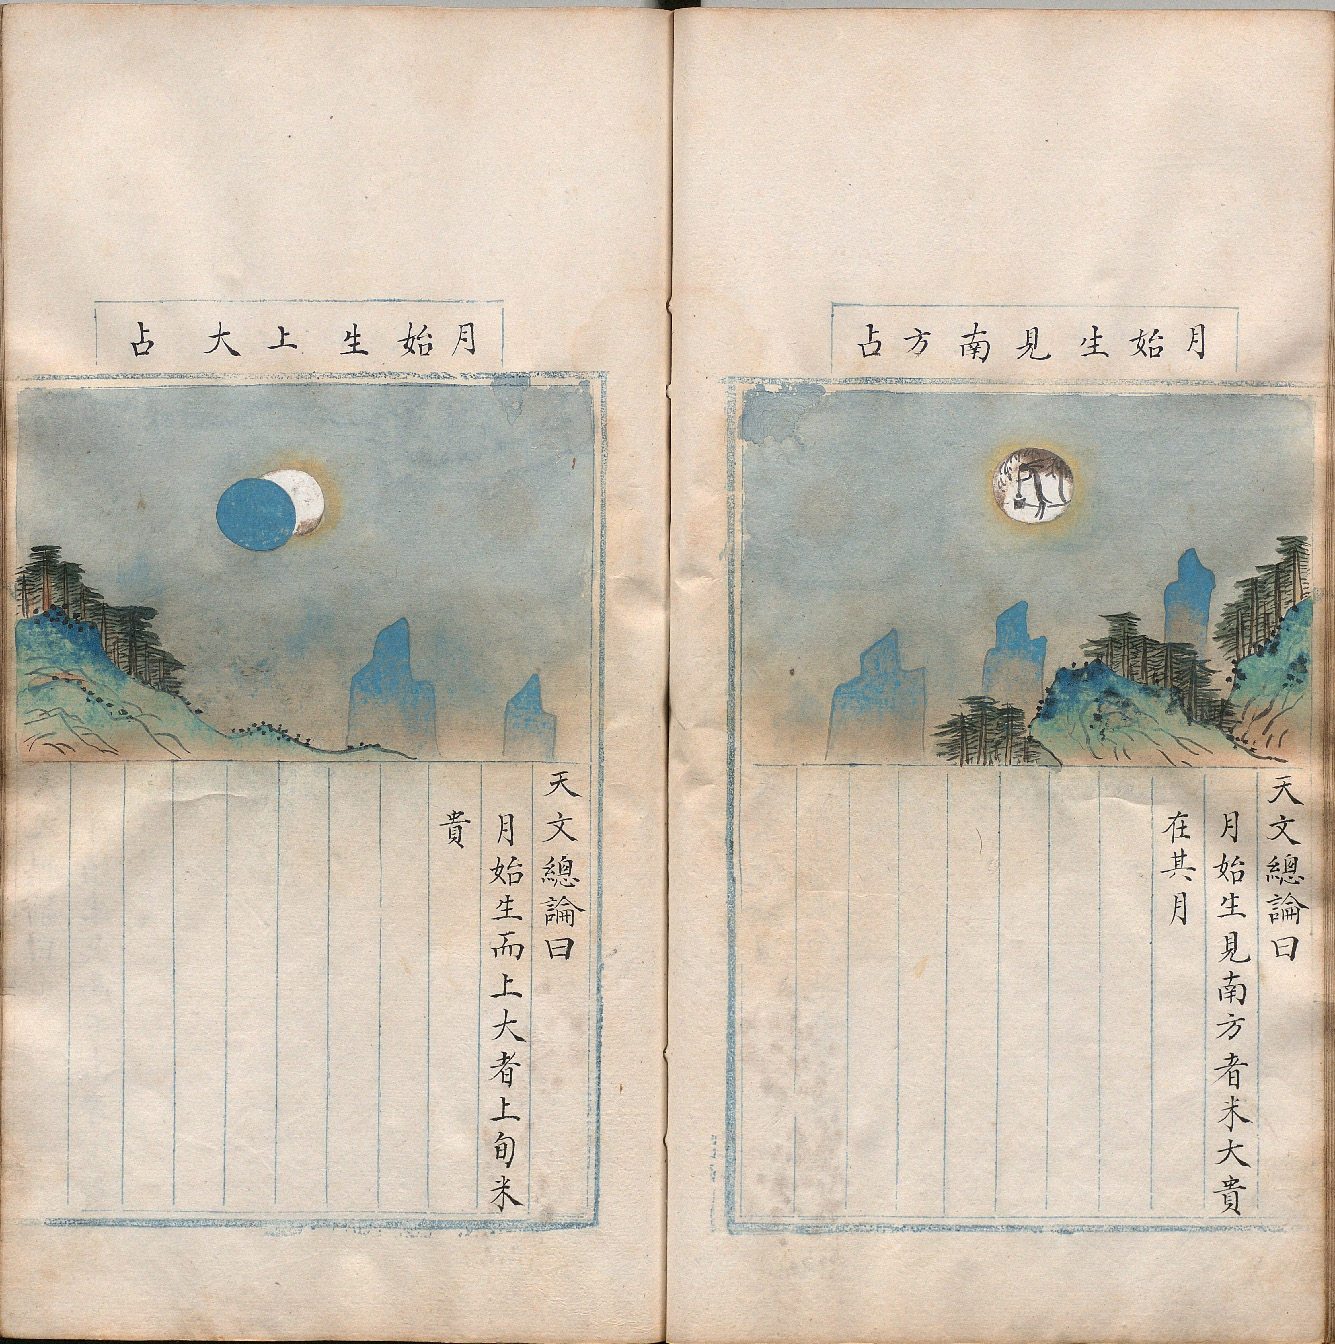 月始生見南方占
天文總論曰
月始生見南方者米大貴
在其月
月始生上大占
天文總論曰
月始生而上大者上旬米
貴